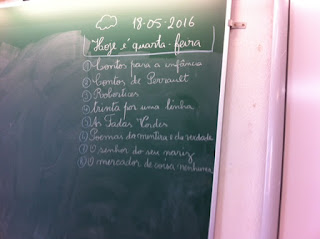 18-05-2016
Hoje é quarta-feira
① Contos para a infância
② Contos de Perrault
③ Robertices
④ trinta por uma linha
⑤ As Fadas Verdes
⑥ Poemas da mentira e da verdade
⑦ O senhor do seu nariz
⑧ O mercador de coisa nenhuma